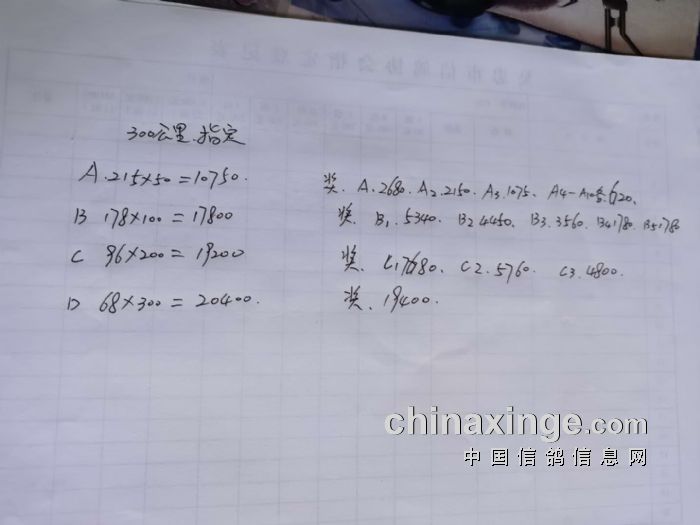 300公里指定
A.215×50=10750.
奖、A.2680.A2.2150.A3.1075、A4-A10各620.
B 178×100=17800
奖、B1.5340、B2 4450、B3.3560.B4 1780.B5 1780
C 96×200=19200
奖、C1 7680、C2.5760. C3.4800.
D 68×300=20400.
奖、19400.
chinaxinge.com
中国信鸽信息网